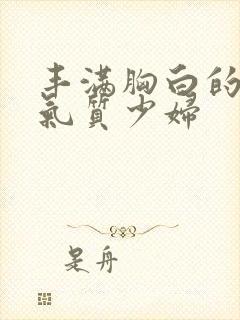 丰满胸白的
氣质少婦
是舟